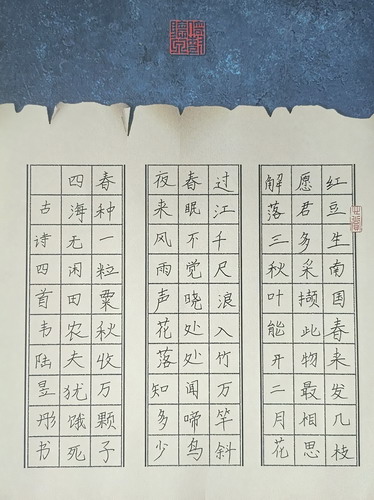 红豆生南国春来发几枝
愿君多采撷此物最相思
解落三秋叶能开二月花
过江千尺浪入竹万竿斜
春眠不觉晓处处闻啼鸟
夜来风雨声花落知多少
春种一粒粟秋收万颗子
四海无闲田农夫犹饿死
古诗四首韦陆昱彤书